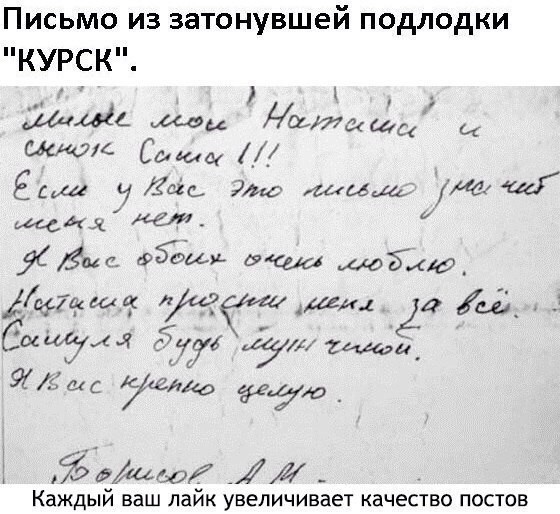 Письмо из затонувшей подлодки
"КУРСК".
Милые мои Наташа и
сынок Саша!!!
Если у Вас это письмо значит
меня нет.
Я Вас обоих очень люблю.
Наташа прости меня за всё.
Сашуля будь мужчиной.
Я Вас крепко целую.
Борисов А.М.
Каждый ваш лайк увеличивает качество постов